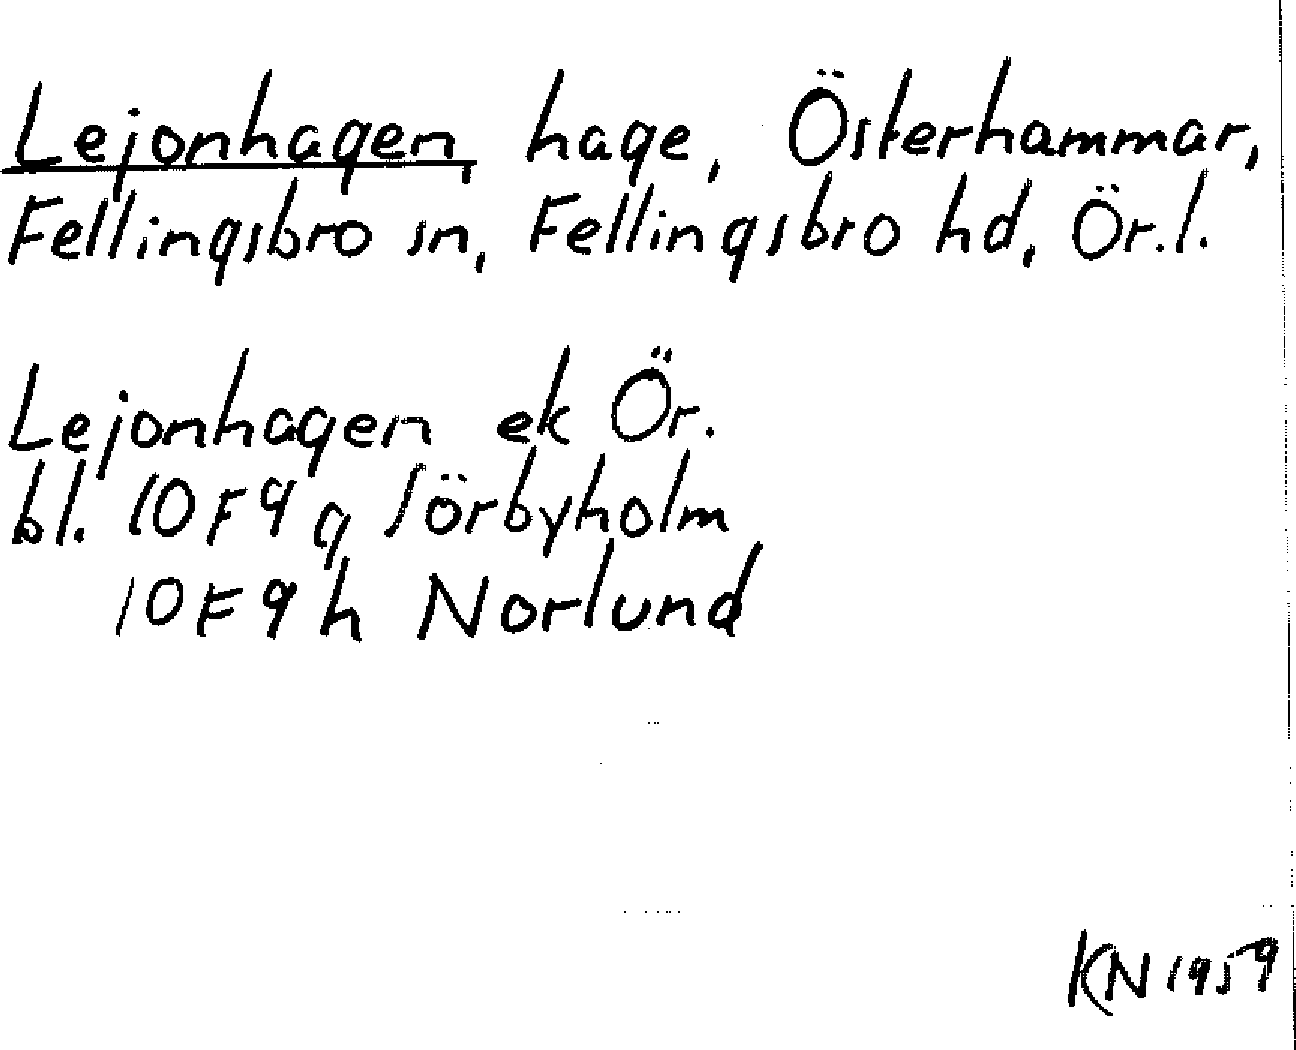 Lejonhagen, hage, Österhammar,
Fellingsbro sn, Fellingsbro hd, Ör.l.
Lejonhagen ek Ör.
bl. 10F9g Sörbyholm
10F9h Norlund
KN 1959